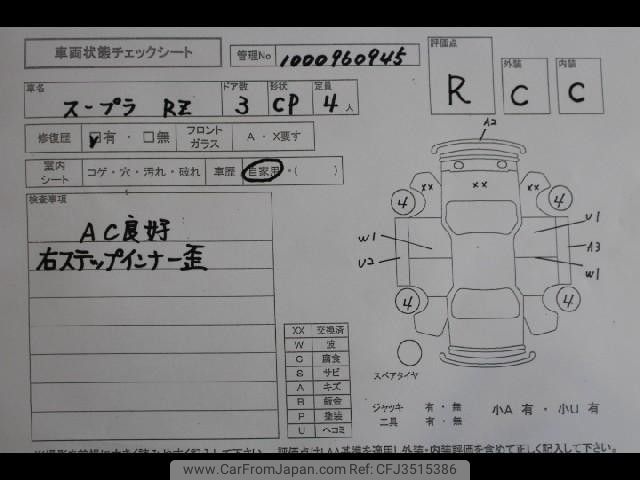 車両状態チェックシート
管理No 1000960945
評価点 R
外装 C
内装 C
車名 スープラ RZ
ドア数 3
形状 CP
定員 4人
修復歴 ☑有・□無
フロントガラス A・X要す
室内シート コゲ・穴・汚れ・破れ
車歴 自家用・( )
検査事項
AC良好
右ステップインナー歪
A2
XX XX XX
4 4
W1 U1
U2 A3
W1
4 4
スペアタイヤ
XX 交換済
W 波
C 腐食
S サビ
A キズ
R 鈑金
P 塗装
U ヘコミ
ジャッキ 有・無
工具 有・無
小A 有・小U 有
評価点はJAA基準を適用し外装・内装評価を含めて正しく記入して下さい。
www.CarFromJapan.com Ref:CFJ3515386